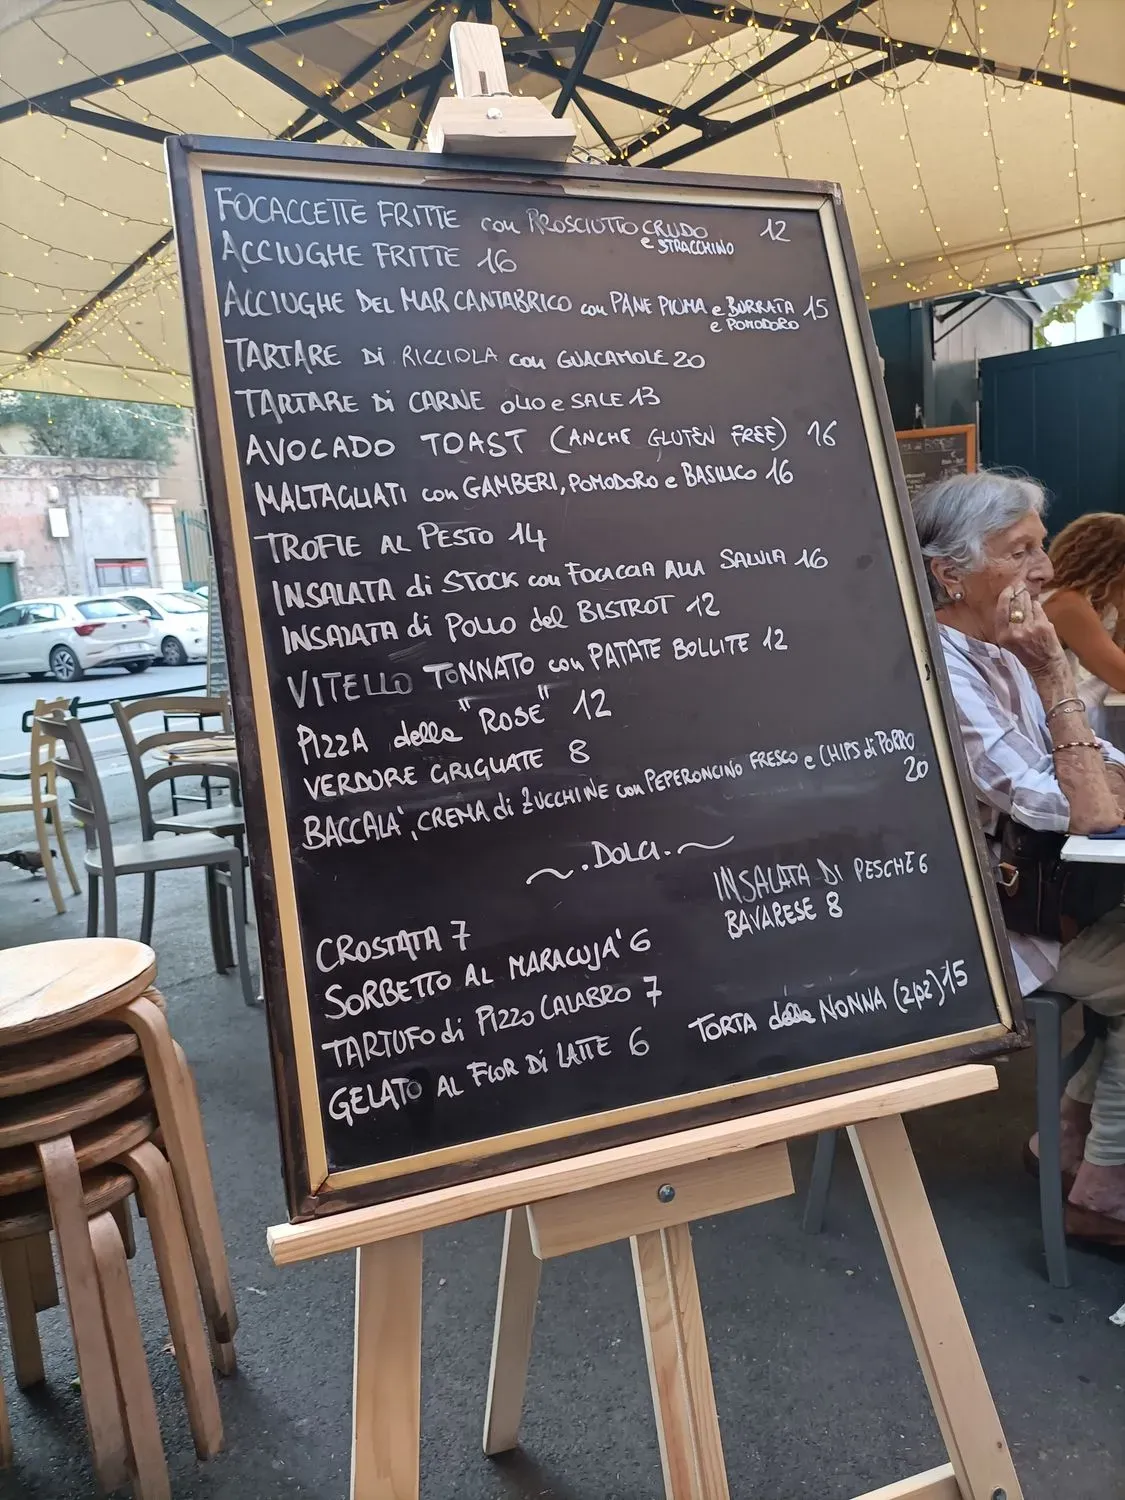 FOCACCETTE FRITTE con PROSCIUTTO CRUDO 12
e STRACCHINO
ACCIUGHE FRITTE 16
ACCIUGHE DEL MAR CANTABRICO con PANE PIUMA e BURRATA 15
e POMODORO
TARTARE Di RICCIOLA con GUACAMOLE 20
TARTARE Di CARNE OLIO e SALE 13
AVOCADO TOAST (ANCHE GLUTEN FREE) 16
MALTAGLIATI con GAMBERI, POMODORO e BASILICO 16
TROFIE AL PESTO 14
INSALATA di STOCK con FOCACCIA ALLA SALVIA 16
INSALATA di POLLO del BISTROT 12
VITELLO TONNATO con PATATE BOLLITE 12
PIZZA della "ROSE" 12
VERDURE GRIGLIATE 8
BACCALA', CREMA di ZUCCHINE con PEPERONCINO FRESCO e CHIPS di PORRO
20
~. DOLCI. ~
INSALATA DI PESCHE 6
BAVARESE 8
CROSTATA 7
SORBETTO AL MARACUJA' 6
TARTUFO di PIZZO CALABRO 7
GELATO AL FIOR DI LATTE 6
TORTA della NONNA (2pz) 15